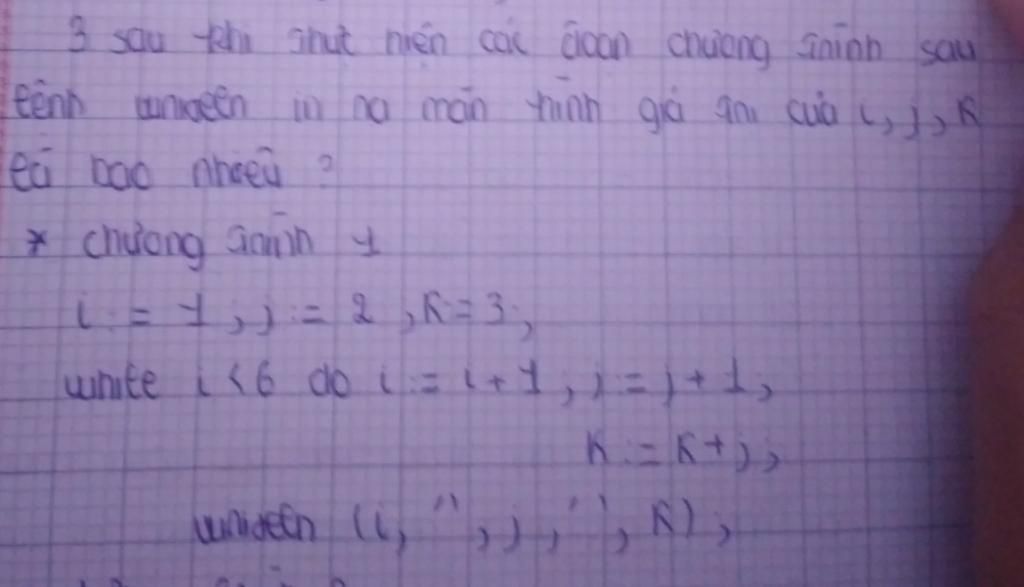 3 sau khi thực hiện các đoạn chương trình sau
lệnh writeln in ra màn hình giá trị của i, j, k
là bao nhiêu ?
* chương trình 1
i := 1, j := 2, k = 3,
while i < 6 do i := i + 1, j = j + 1,
k := k + j,
writeln (i, '', j, '', k),